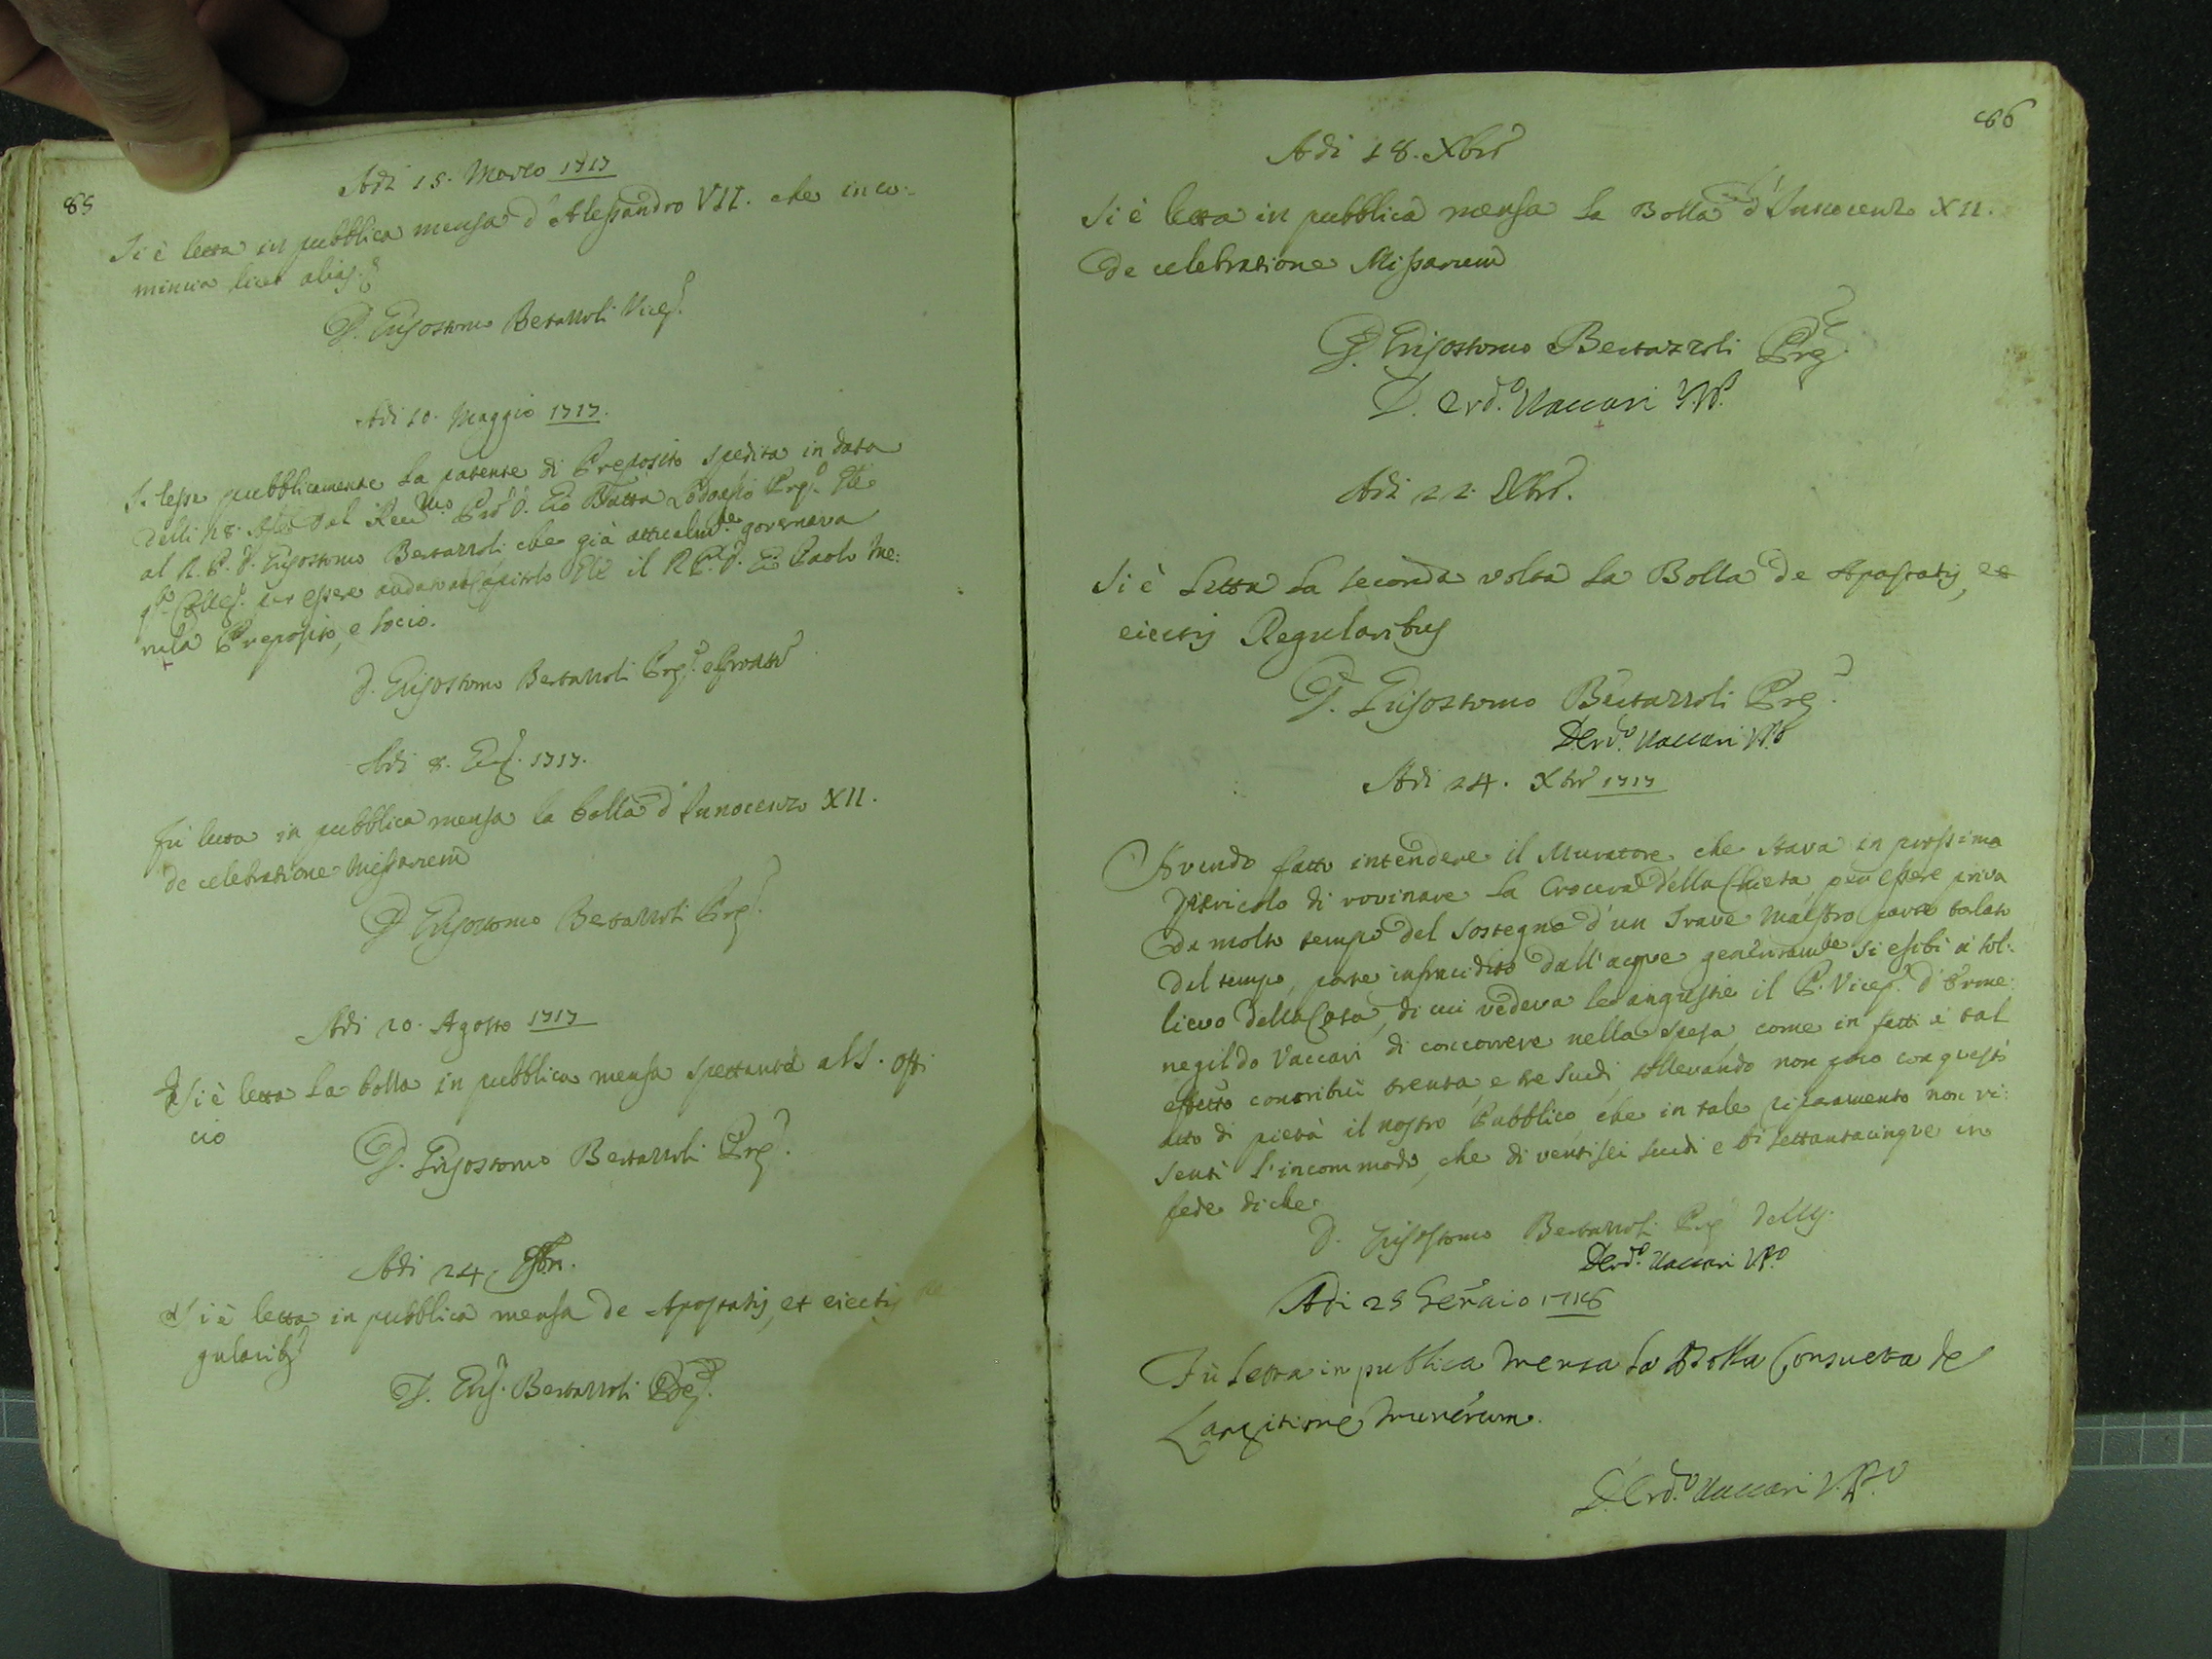 85
Adi 15. Marzo 1717
Si è letta in pubblica mensa d'Alessandro VII. che inco:
mincia licet alias.
D. Grisostomo Bertazzoli Vicep.
Adi 10. Maggio 1717.
Si lesse pubblicamente la patente di Preposito spedita in data
delli 28. dal Reu.mo Pad. D. Gio Batta Lodovasio
al R. P. D. Grisostomo Bertazzoli che già attualm.te governava
q.to Colleg. per essere andato al Capitolo il R. P. D. Gio Paolo Me:
rula Preposito, e Socio.
D. Grisostomo Bertazzoli Prep.
Adi 8. Giug. 1717.
Fù letta in pubblica mensa la bolla d'Innocenzo XII.
de celebratione missarum
D. Grisostomo Bertazzoli Prep.
Adi 20. Agosto 1717
Si è letta la bolla in pubblica mensa spettante al S. Offi
cio
D. Grisostomo Bertazzoli Prep.
Adi 24.
Si è letta in pubblica mensa de Apostatis, et eiectis Re
gularib.
D. Gris. Bertazzoli Prep.
86
Adi 18. Xbre
Si è letta in pubblica mensa la Bolla d'Innocenzo XII.
de celebratione Missarum
D. Grisostomo Bertazzoli Prep.
D. Erd.o Vaccari V.P.
Adi 22. Xbre.
Si è letta la seconda volta la Bolla de Apostatis, et
eiectis Regularibus
D. Grisostomo Bertazzoli Prep.
D. Erd.o Vaccari V.P.
Adi 24. Xbre 1717
Avendo fatto intendere il Muratore che stava in prossimo
pericolo di rovinare la Crociera della Chiesa per essere priva
da molto tempo del sostegno d'un Trave maestro parte tarlato
dal tempo, parte infracidito dall'acque generalm.te si esibì à sol:
lievo della Casa, di cui vedeva le angustie il P. Vicep. D. Erme:
negildo Vaccari di concorrere nella spesa come in fatti à tal
effetto contribuì trenta, e tre scudi, sollevando non poco con questo
atto di pietà il nostro Pubblico, che in tale riparamento non ri:
sentì l'incommodo, che di ventisei scudi e bl settantacinque in
fede di che.
D. Grisostomo Bertazzoli Prep
D. Erd.o Vaccari V.P.
Adi 25 Gennaio 1718
Fù Letta in publica Mensa la Bolla Consueta de
Largitione Munerum.
D. Erd.o Vaccari V.P.